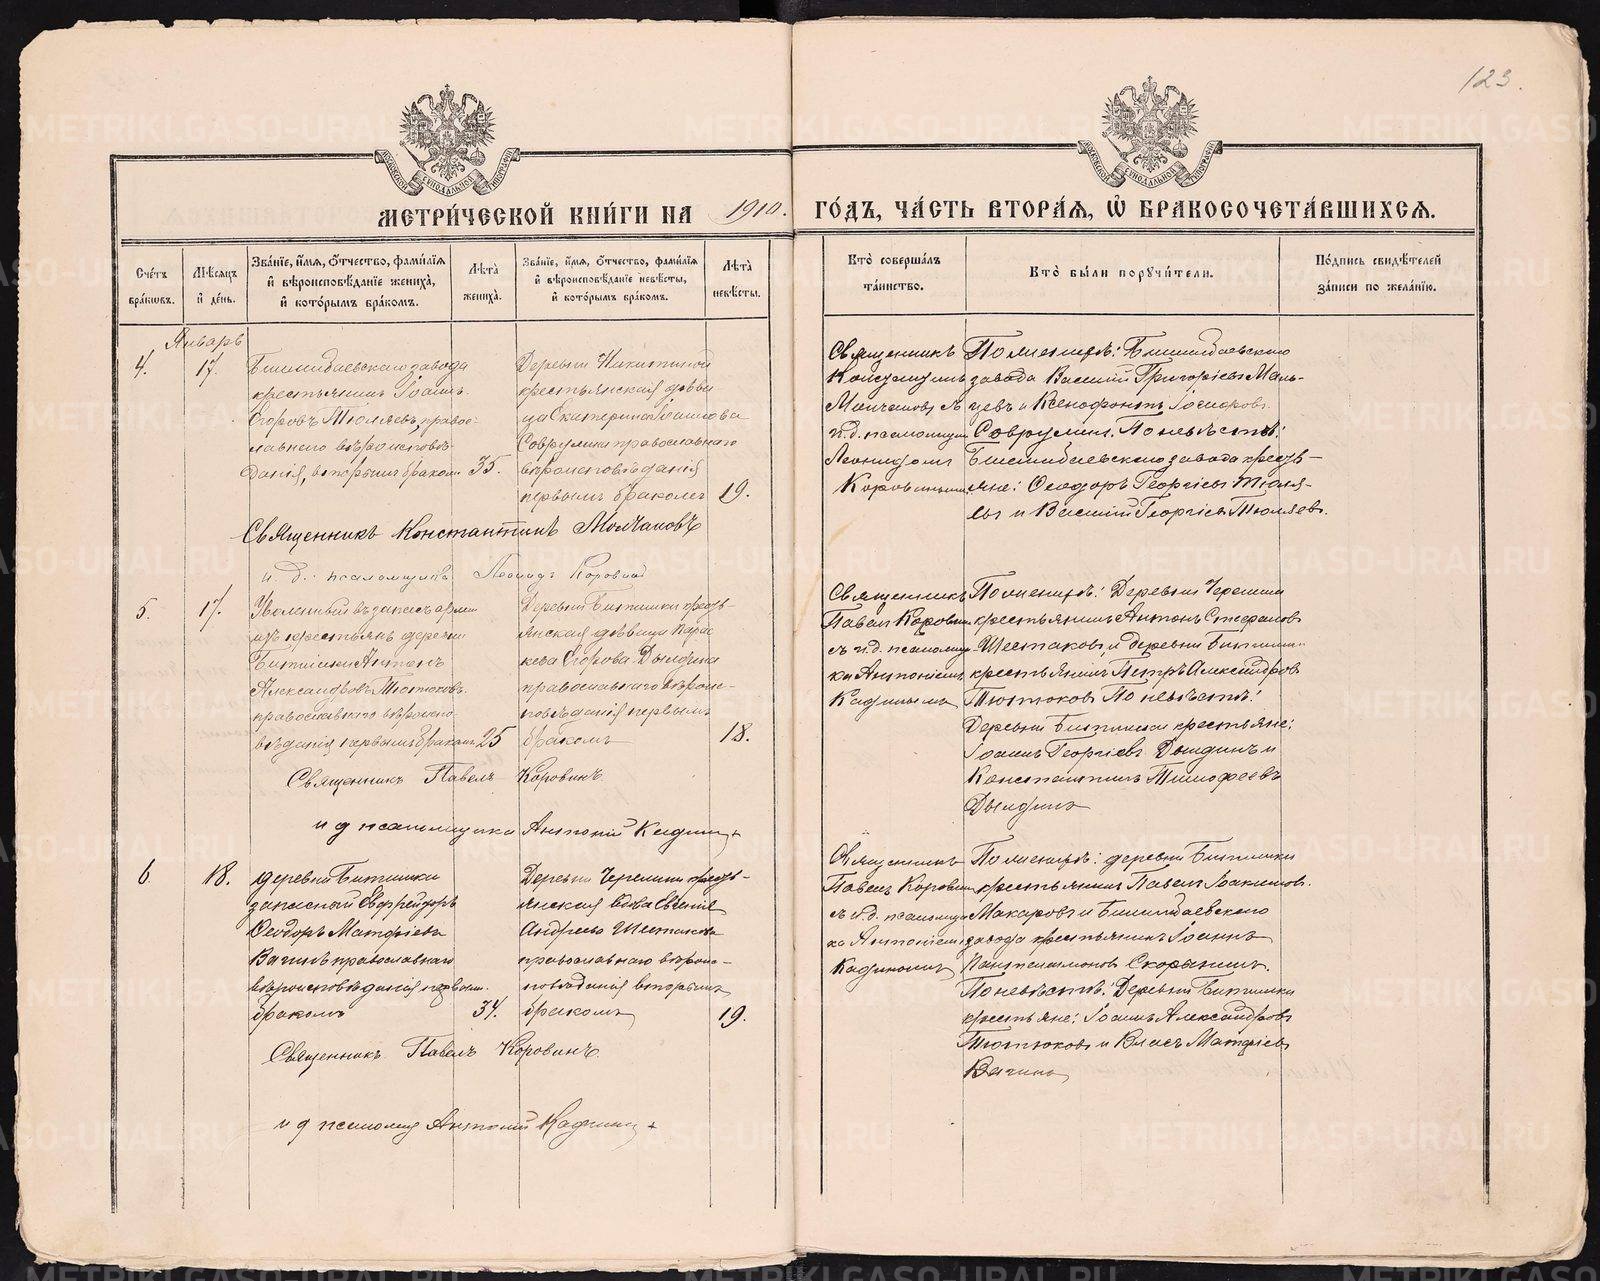 123.
МОСКОВСКОЙ СѴНОДАЛЬНОЙ ТИПОГРАФІИ
МОСКОВСКОЙ СѴНОДАЛЬНОЙ ТИПОГРАФІИ
МЕТРИ́ЧЕСКОЙ КНИ́ГИ НА 1910. ГО́ДЪ, ЧА́СТЬ ВТОРА́Ѧ, Ѽ БРАКОСОЧЕТА́ВШИХСѦ.
Сче́тъ бра́кωвъ.
Мѣ́сяцъ и̓ де́нь.
Зва́нїе, и́мя, ѻ́тчество, фами́лїя и̓ вѣроисповѣ́данїе жениха̀, и̓ кото́рымъ бра́комъ.
Лѣ́та жениха̀.
Зва́нїе, и́мя, ѻ́тчество, фами́лїя и̓ вѣроисповѣ́данїе невѣ́сты, и̓ кото́рымъ бра́комъ.
Лѣ́та невѣ́сты.
Кто̀ соверша́лъ та́инство.
Кто̀ бы́ли порꙋчи́тели.
По́дпись свидѣ́телей за́писи по жела́нїю.
Январь
4.
17.
Билимбаевскаго завода
крестьянинъ Іоаннъ
Егоровъ Тюляевъ, правос-
лавнаго вѣроисповѣ-
данія, вторымъ бракомъ
35.
Деревни Никитиной
крестьянская дѣви
ца Екатерина Іоаннова
Соврулина православнаго
вѣроисповѣданія
первымъ бракомъ
19.
Священникъ
Константинъ
Молчановъ съ
и.д. псаломщик
Леонидомъ
Коровинымъ
По женихѣ: Билимбаевскаго
завода Василій Григорьевъ Маль-
цевъ и Ксенофонтъ
Соврулинъ. По невѣстѣ:
Билимбаевскаго завода крестья-
яне: Ѳеодоръ Георгіевъ Тюля-
евъ и Василій Георгіевъ Тюляевъ.
Священникъ Константинъ Молчановъ
и. д. псаломщика Леонидъ Коровин
5.
17.
Уволенный въ запасъ арміи
изъ крестьянъ деревни
Битимки Антонъ
Александровъ Тютюковъ
православнаго вѣроиспо
вѣданія первымъ бракомъ
25
Деревни Битимки кресть-
янская дѣвица Парас
кева Егорова Дылдина
православнаго вѣроис-
повѣданія первымъ
бракомъ
18.
Священникъ
Павелъ Коровин
съ и.д. псаломщи
ка Антоніемъ
Кадинымъ
По женихѣ: Деревни Черемши
крестьянинъ Антонъ Стефановъ
Шестаковъ и деревни Битимки
крестьянинъ Петръ Александровъ
Тютюковъ По невѣстѣ:
Деревни Битимки крестьяне:
Іоаннъ Георгіевъ Дылдинъ и
Константинъ Тимофеевъ
Дылдинъ
Священникъ Павелъ Коровинъ
и д псаломщика Антоній Кадинъ
6
18.
деревни Битимки
запасный Ефрейторъ
Ѳеодоръ Матфіевъ
Вагинъ православнаго
вѣроисповѣданія первым
бракомъ
34.
Деревни Черемши кресть-
янская вдова Евгенія
Андреева Шестакова
православнаго вѣроис-
повѣданія вторымъ
бракомъ
19.
Священникъ
Павелъ Коровин
съ и.д. псаломщи
ка Антоніем
Кадинымъ
По женихѣ: деревни Битимки
крестьянинъ Павелъ Іоакимов.
Макаровъ и Билимбаевскаго
завода крестьянинъ Іоаннъ
Пантелеимоновъ Скорынинъ.
По невѣстѣ: Деревни Битимки
крестьяне: Іоаннъ Александровъ
Тютюковъ и Власъ Матфіевъ
Вагинъ
Священникъ Павелъ Коровинъ
и д псаломщ Антоній Кадинъ
METRIKI.GASO-URAL.RU